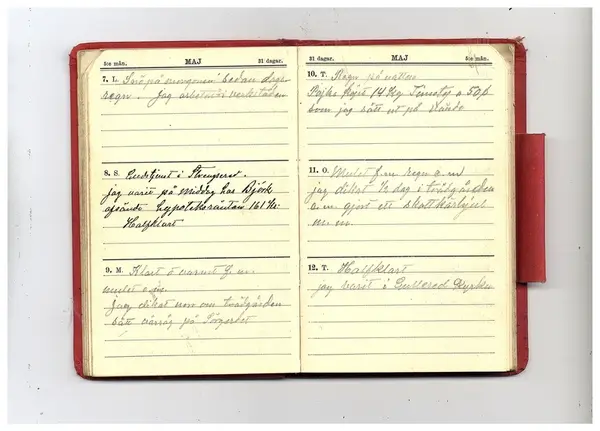 5:e mån. MAJ 31 dagar.
7. L. Snö på morgonen sedan dags-
regn. Jag arbetat i verkstaden
8. S. Gudstjenst i
jag varit på middag hos Björk
afsändt hypoteksräntan 161 Kr
Halfklart
9. M. Klart o varmt f.m.
mulet e.m.
jag dikat om tvålgården
sått vårråg på
31 dagar. MAJ 5:e mån.
10. T. Regn på natten
köpt 14 kg Timotej a 50 ö
som jag sått ut på
11. O. Mulet f.m. regn e.m
jag dikat ½ dag i trädgården
e.m gjort ett skottkärhjul
m.m.
12. T. Halfklart
jag varit i Gullered Kyrka